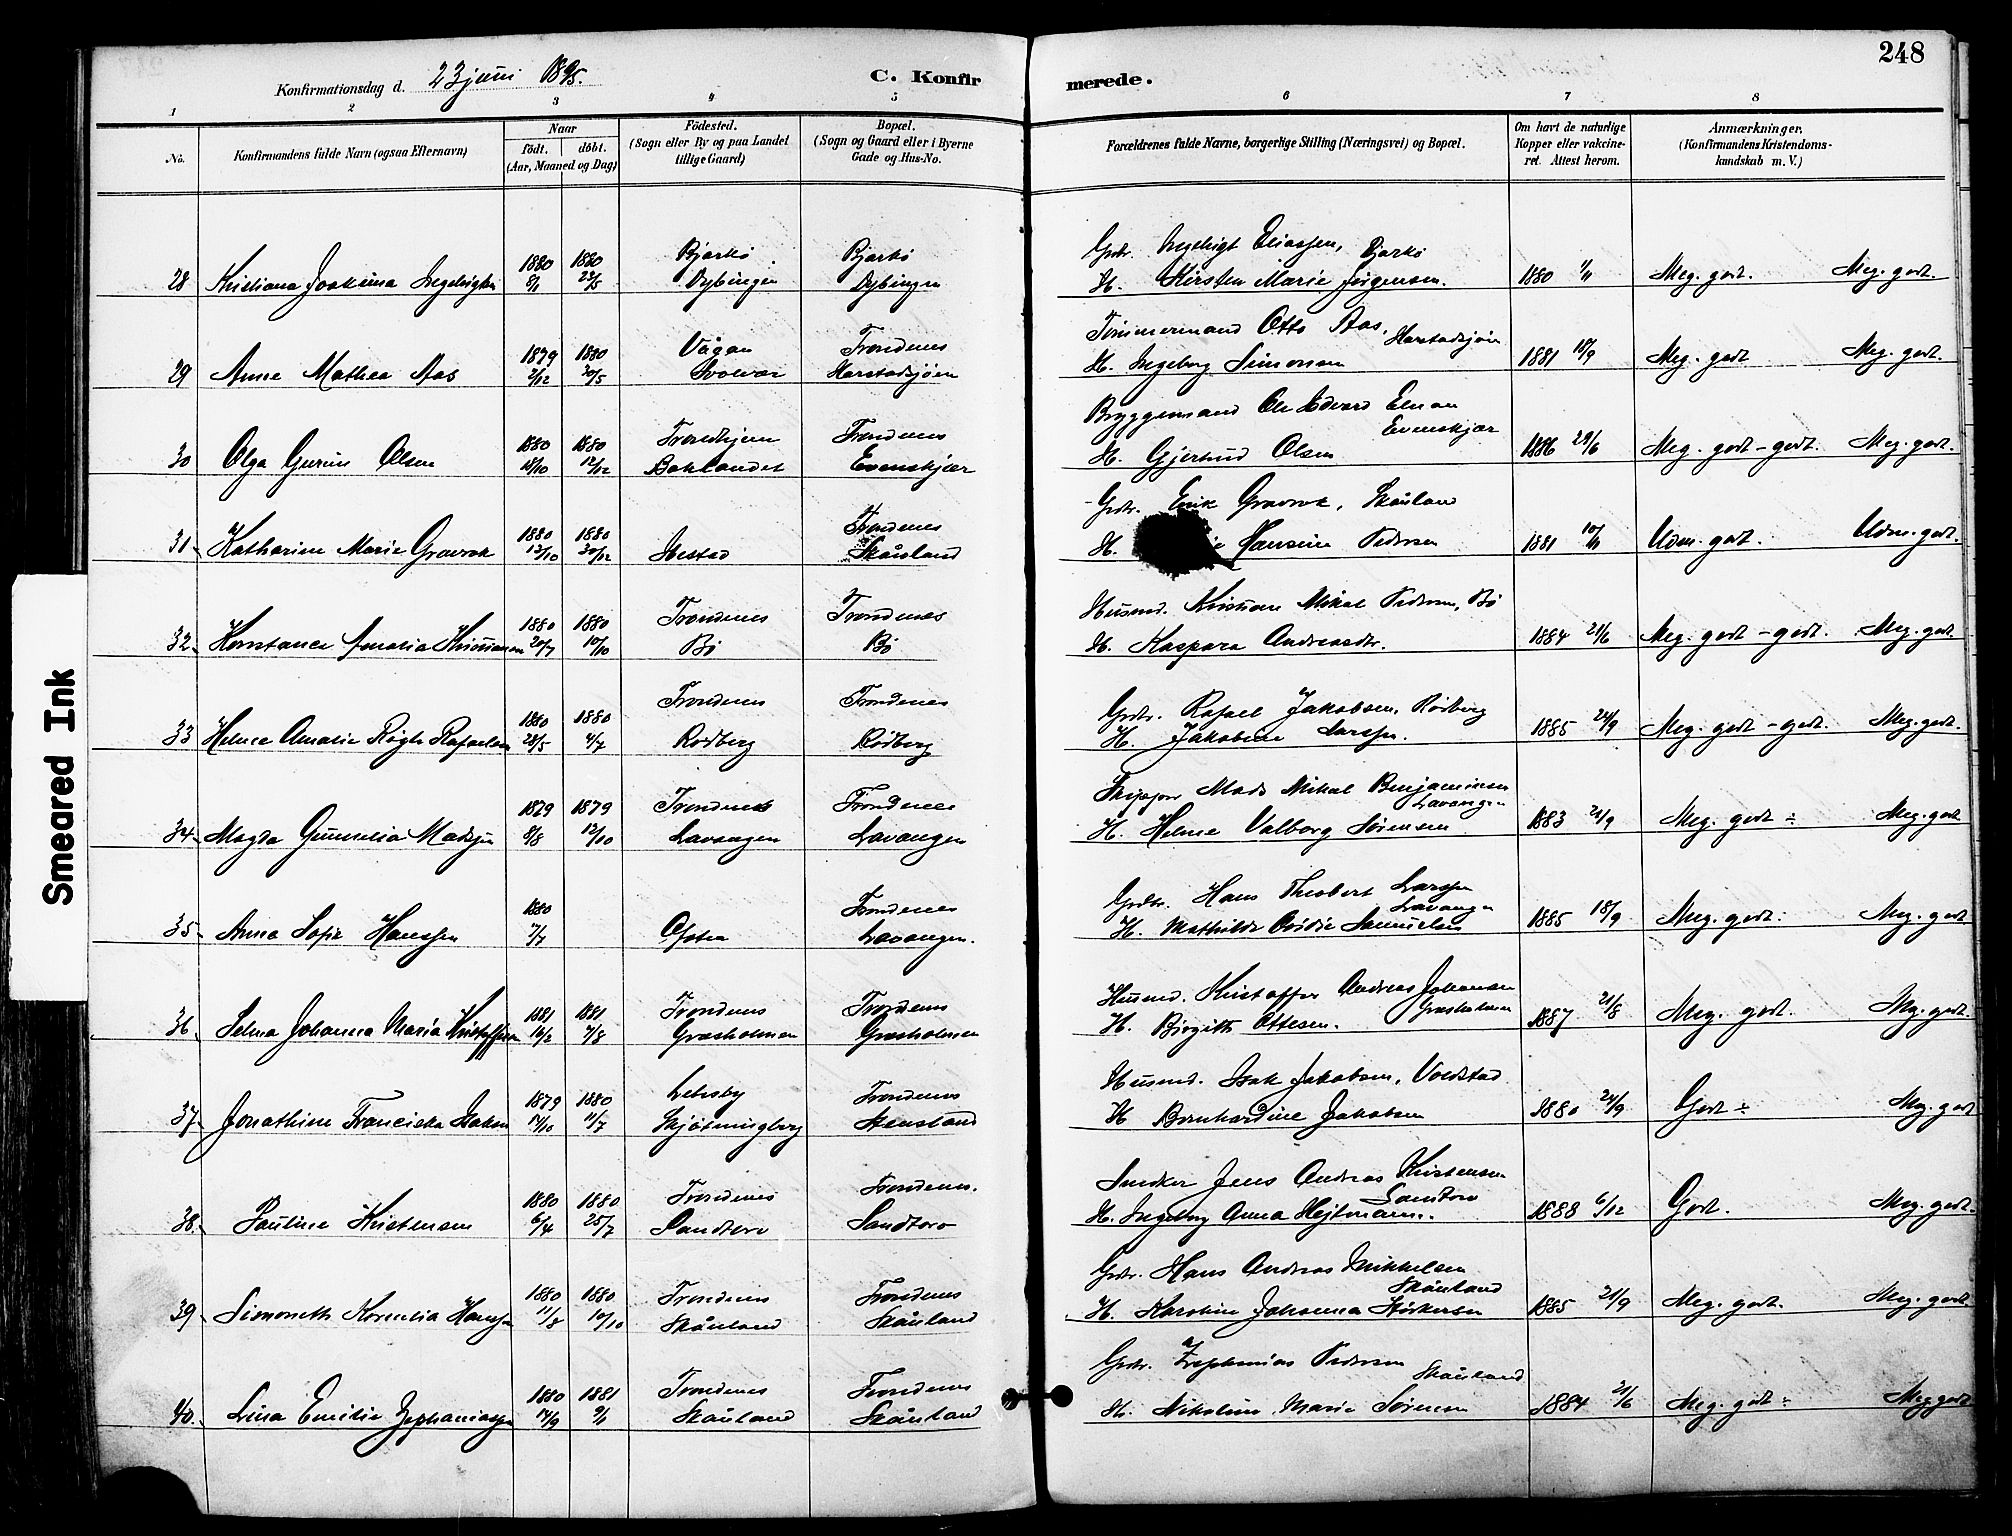 248
Konfirmationsdag d. 23 juni 1895.
C. Konfirmerede.
1 2 3 4 5 6 7 8
No.
Konfirmandens fulde Navn (ogsaa Efternavn)
Naar
födt. döbt.
(Aar, Maaned og Dag)
Födested.
(Sogn eller By og paa Landet tillige Gaard)
Bopæl.
(Sogn og Gaard eller i Byerne Gade og Hus-No.
Forældrenes fulde Navne, borgerlige Stilling (Næringsvei) og Bopæl.
Om havt de naturlige Kopper eller vakcineret. Attest herom.
Anmærkninger.
(Konfirmandens Kristendomskundskab m. V.)
1880 1880 Bjarkö Bjarkö Grdr. Ingebrigt Eliassen, Bjarkö
28 Kristiana Joakima Ingebrigtsen 8/1 23/5 Dybingen Dybingen H. Kirsten Marie Jörgensen. 1880 1/11 Meg. godt. Meg. godt.
1879 1880 Vågan Trondenes Tömmermand Otto Aas, Harstadsjöen
29 Anne Mathea Aas 2/12 20/5 Svolvær Harstadsjöen H. Ingeborg Simonsen 1881 18/9 Meg. godt Meg. godt.
1880 1880 Trondhjem Trondenes Bryggemand Ole Edvard
Evenskjær
30 Olga Olsen 18/10 12/12 Baklandet Evenskjær H. Gjertrud Olsen 1886 29/6 Meg. godt - godt. Meg. godt.
1880 1880 Trondenes Grdr. Erik Gravrok, Skånland
31. Katharine Marie Gravrok 13/10 30/12 Ibestad Skånland H. Hansine Pedersen 1881 10/11 Udm. godt. Udm. godt.
1880 1880 Trondenes Trondenes Husmd. Kristian Mikal Pedersen, Bö
32. Konstance Amalia Kristiansen 20/7 10/10 Bö Bö H. Kaspara Andreasdtr. 1884 21/6 Meg. godt - godt. Meg. godt.
1880 1880 Trondenes Trondenes Grdr. Rafael Jakobsen, Rödberg
33 Helme Amalie Rafaelsen 28/5 4/7 Rödberg Rödberg H. Jakobine Larssen. 1885 24/9 Meg. godt - godt. Meg. godt.
1879 1879 Trondenes Trondenes Skipper Mads Mikal Benjaminsen
Lavangen
34. Magda Madsen 8/8 12/10 Lavangen Lavangen H. Helme Valborg Sörensen 1883 21/9 Meg. godt ÷ Meg. godt
1880 Trondenes Grdbr. Hans Theobert Larssen
Lavangen
35. Anna Sofie Hanssen 7/7 Ofoten Lavangen. H. Mathilde Samuelsen 1885 18/9 Meg. godt: Meg. godt
1881 1881 Trondenes Trondenes Husmd. Kristoffer Andreas Johansen
Græsholmen
36. Selma Johanna Maria Kristoffersen 16/2 7/8 Græsholmen Græsholmen H. Birgitte Ottesen. 1887 21/8 Meg. godt. Meg. godt.
1879 1880 Lebesby Trondenes Husmd. Isak Jakobsen, Voldstad
37. Jonathine Franciska Isaksen 14/10 11/7 Skjötningberg Stenstand H Bernhardine Jakobsen 1880 24/9 Godt ÷ Meg. godt
1880 1880 Trondenes Trondenes. Snedker Jens Andreas Kristensen
Sandtoro
38. Pauline Kristensen 6/4 25/7 Sandtoro Sandtoro H. Ingeborg Anna Hejtmann. 1888 6/12 Godt. Meg. godt.
1880 1880 Trondenes Trondenes Grdr. Hans Andreas Mikkelsen
Skånland
39. Simoneth Kornelia Hanssen 11/8 10/10 Skånland Skånland H. Karoline Johanna Störkersen 1885 21/9 Meg. godt. Meg. godt
1880 1881 Trondenes Trondenes Grdr. Zephanias Pedersen
Skånland
40. Lina Emilie Zephaniassen 14/9 9/1 Skånland Skånland H. Nikoline Marie Sörensen 1884 21/6 Meg. godt ÷ Meg. godt
Smeared Ink